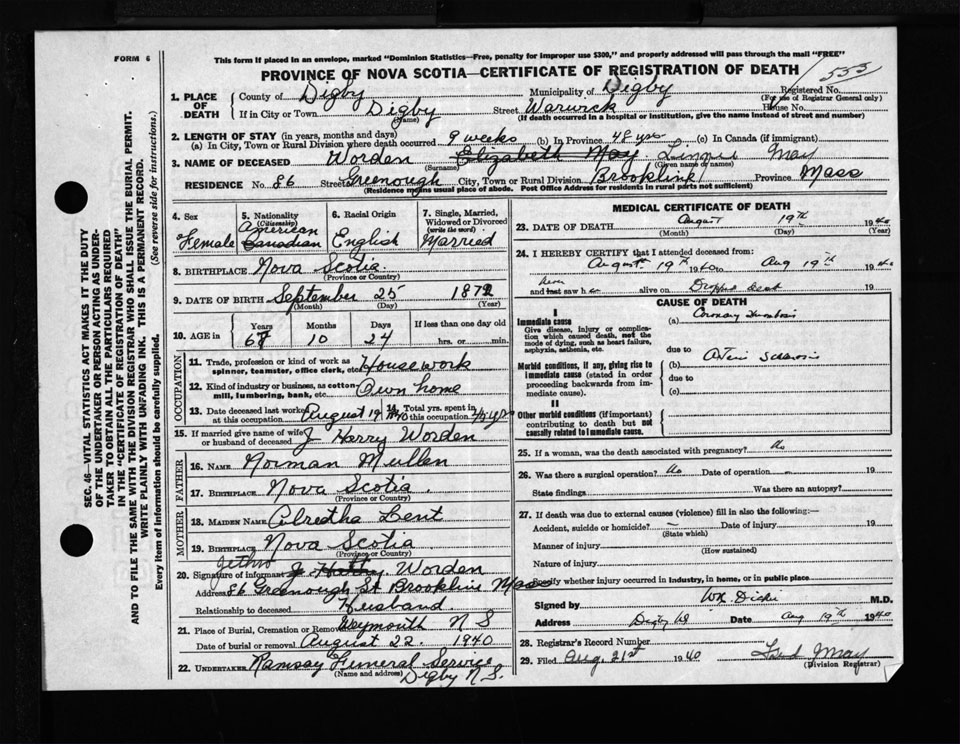 FORM 6
This form if placed in an envelope, marked "Dominion Statistics—Free, penalty for improper use $300," and properly addressed will pass through the mail "FREE"
PROVINCE OF NOVA SCOTIA—CERTIFICATE OF REGISTRATION OF DEATH
555
1. PLACE OF DEATH
County of Digby Municipality of Digby Registered No.
(For use of Registrar General only)
If in City or Town Digby Street Warwick House No.
(Name) (If death occurred in a hospital or institution, give the name instead of street and number)
2. LENGTH OF STAY (in years, months and days)
(a) In City, Town or Rural Division where death occurred 9 weeks (b) In Province 48 yrs (c) In Canada (if immigrant)
3. NAME OF DECEASED Worden Elizabeth May May
(Surname) (Given name or names)
RESIDENCE No. 86 Street Greenough City, Town or Rural Division Brookline Province Mass
(Residence means usual place of abode. Post Office Address for residents in rural parts not sufficient)
4. Sex Female
5. Nationality (Citizenship) American Canadian
6. Racial Origin English
7. Single, Married, Widowed or Divorced (write the word) Married
8. BIRTHPLACE Nova Scotia
(Province or Country)
9. DATE OF BIRTH September 25 1872
(Month) (Day) (Year)
10. AGE in Years Months Days If less than one day old
68 10 24 hrs. or min.
OCCUPATION
11. Trade, profession or kind of work as spinner, teamster, office clerk, etc. Housework
12. Kind of industry or business, as cotton mill, lumbering, bank, etc. Own home
13. Date deceased last worked at this occupation August 19 1940 14. Total yrs. spent in this occupation 45 yrs
15. If married give name of wife or husband of deceased J Harry Worden
FATHER
16. NAME Norman Mullen
17. BIRTHPLACE Nova Scotia
(Province or Country)
MOTHER
18. MAIDEN NAME Lent
19. BIRTHPLACE Nova Scotia
(Province or Country)
Jethro
20. Signature of informant J. Harry Worden
Address 86 Greenough St Brookline Mass
Relationship to deceased Husband
21. Place of Burial, Cremation or Removal Weymouth N S
Date of burial or removal August 22 1940
22. UNDERTAKER Ramsay Funeral Service
(Name and address) Digby N.S.
MEDICAL CERTIFICATE OF DEATH
23. DATE OF DEATH August 19th 1940
(Month) (Day) (Year)
24. I HEREBY CERTIFY that I attended deceased from:
August 19th 1940 to Aug 19th 1940
and last saw h er alive on Dropped dead 19
CAUSE OF DEATH
I
Immediate cause
Give disease, injury or complication which caused death, not the mode of dying, such as heart failure, asphyxia, asthenia, etc.
(a) Coronary Thrombosis
due to
Morbid conditions, if any, giving rise to immediate cause (stated in order proceeding backwards from immediate cause).
(b)
due to
(c)
II
Other morbid conditions (if important) contributing to death but not causally related to immediate cause.
25. If a woman, was the death associated with pregnancy? No
26. Was there a surgical operation? No Date of operation 19
State findings Was there an autopsy?
27. If death was due to external causes (violence) fill in also the following:—
Accident, suicide or homicide? Date of injury 19
(State which)
Manner of injury
(How sustained)
Nature of injury
Specify whether injury occurred in industry, in home, or in public place
Signed by M.D.
Address Digby NS Date Aug 19th 1940
28. Registrar's Record Number
29. Filed Aug. 21st 1940
(Division Registrar)
SEC. 46—VITAL STATISTICS ACT MAKES IT THE DUTY
OF THE UNDERTAKER OR PERSON ACTING AS UNDER-
TAKER TO OBTAIN ALL THE PARTICULARS REQUIRED
IN THE "CERTIFICATE OF REGISTRATION OF DEATH"
AND TO FILE THE SAME WITH THE DIVISION REGISTRAR WHO SHALL ISSUE THE BURIAL PERMIT.
WRITE PLAINLY WITH UNFADING INK. THIS IS A PERMANENT RECORD.
Every item of information should be carefully supplied. (See reverse side for instructions.)